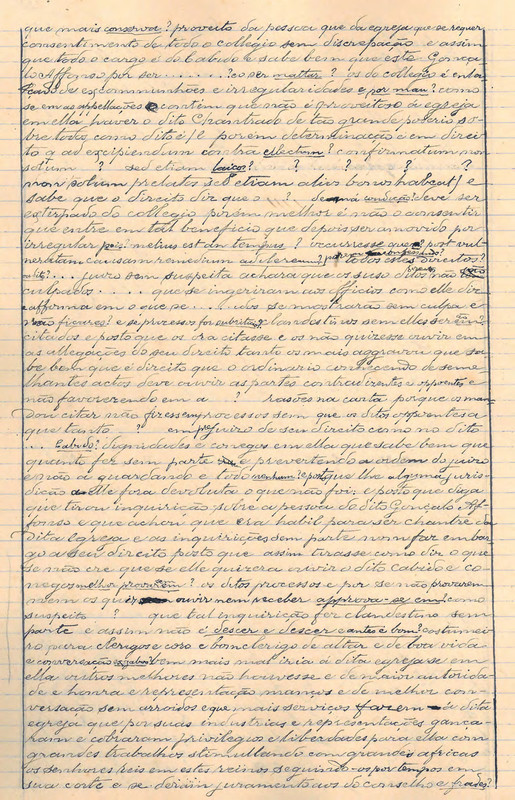 que mais conserva? proveito da pessoa que da egreja que se requer
consentimento de todo o collegio sem discrepação e assim
que todo o cargo é do Cabido e sabe bem que este Gonça
lo Affonso por ser . . . . . . . e o ser mattar? os do collegio é enla
çado de excommunhões e irregularidades e por mau? como
se em as appellações contém que não é proveitoso da egreja
em ella haver o dito Chantrado de tão grande poderio so-
bre tôta, como dito é/ e porem determinação é em direi
to q ad excipiendum contra ellectum? confirmatum non
solum ? sed etiam laicos? ? ? ? ?
non solum prelatos sed etiam alios bonus habeat/ e
sabe que o direito diz que o ? de má condição? deve ser
extirpado do collegio porem melhor é não o consentir
que entre em tal beneficio que depois ser amovido por
irregular pois? melius est in tempus ? occurrere que? post vul
neratam causam remedium todos esses direitos?
juizo bem suspeita achara que os suso ditos não são
culpados . . . . . que se ingeriram aos officios como elle diz
e affirma em o que se . . . . udos se mostrarão sem culpa e
não figuras? e se processos for subriticio? clandestinos sem elles serem?
citados e posto que os ora citasse e os não quizesse ouvir em
as allegações do seu direito tanto os mais aggravou que sa
be bem que é direito que o ordinario conheçendo de seme
lhantes actos deve ouvir as partes contradizentes e oppoentes e
não favorezendo em a . . ? rasões na carta porque os man
dou citar não fizessem processos sem que os ditos oppoentes a
que tanto ? em prejuizo de seu direito como no dito
. . . . Cabido? dignidades e conegos em ella que sabe bem que
quanto fez sem parte e prevertendo a ordem do juizo
e não a guardando e todo nenhum? e posto que lhe alguma juris-
dição a elle fora devoluta o que não foi; e posto que diga
que tirou inquirição sobre a pessoa do dito Gonçalo Af-
fonso e que achou que era habil para ser chantre da
dita Egreja e as inquirições sem parte non faz embar
go a seu direito posto que assim tirasse como diz o que
se não crê que se elle quizera ouvir o dito cabido e co-
negos melhor provêrem? os ditos processos e por se não provarem
nem os quiz ouvir nem receber approva-se em? como
suspeito ? que tal inquirição foi clandestino sem
parte e assim não é descer e descer e antes é bom? costumei-
ro para clerigo e coro e bom clerigo de altar e de boa vida
e conversação e sabe? bem mais mal iria á dita egreja se em
ella outros melhores não houvesse e de maior autorida-
de e honra e representação mansos e de melhor con-
versação sem arroidos e que mais serviços fazem de dita
egreja que por suas industrias e representações gança-
ram e cobraram privilegios e liberdades para ella com
grandes trabalhos stimullando com grandeis africas
os senhores reis em estes reinos seguindo-os por tempos em
sua corte e se deriam juramento aos do conselho e frades?